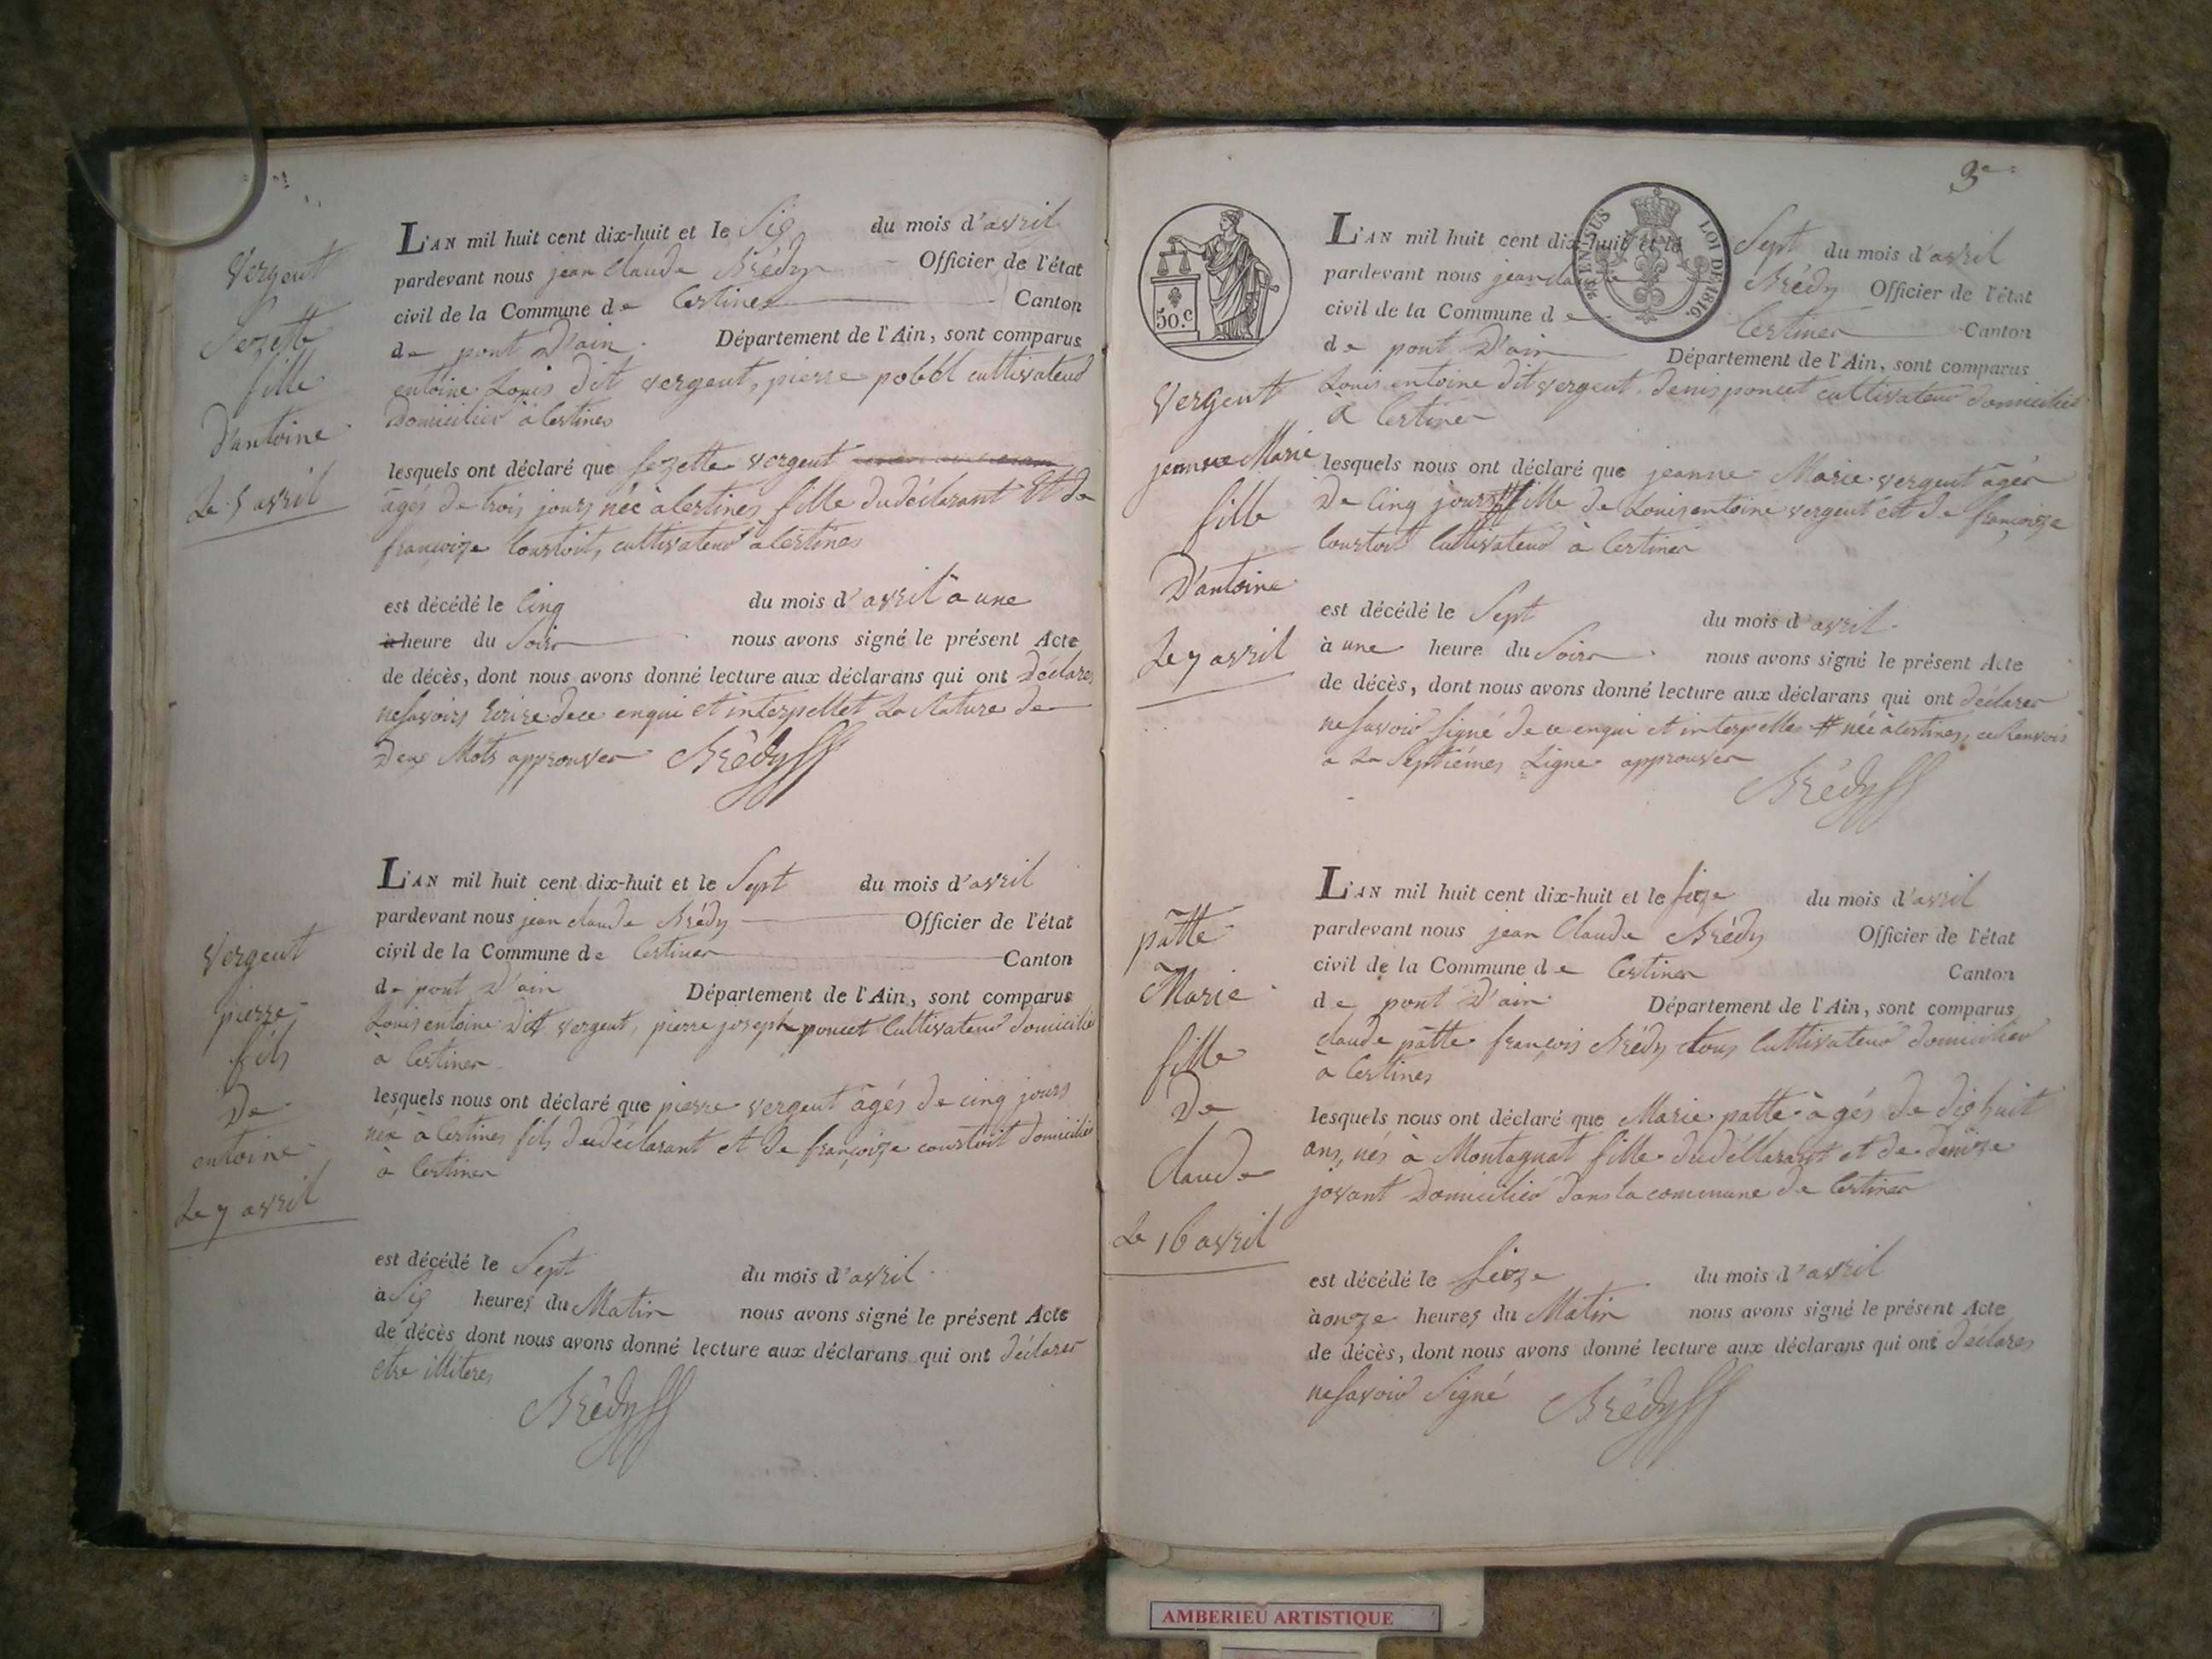 Vergent
Sezette
fille
D'antoine
Le 5 avril
L'AN mil huit cent dix-huit et le Six du mois d'avril
pardevant nous jean Claude Brédy Officier de l'état
civil de la Commune de Certines Canton
de pont D'ain Département de l'Ain, sont comparus
entoine Louis Dit vergent, pierre cultivateur
Domicilier à Certines
lesquels ont déclaré que Sezette vergent
âgés de trois jours née à Certines fille dudéclarant Et de
françoize Courtoit, cultivateur à Certines
est décédé le Cinq du mois d'avril à une
à heure du Soir nous avons signé le présent Acte
de décès, dont nous avons donné lecture aux déclarans qui ont Déclarer
nesavoirs Ecrire dece enqui et interpellet La Rature de
Deux Mots approuver Brédy
Vergent
pierre
fils
De
entoine
Le 7 avril
L'AN mil huit cent dix-huit et le Sept du mois d'avril
pardevant nous jean claude Brédy Officier de l'état
civil de la Commune de Certines Canton
de pont D'ain Département de l'Ain, sont comparus
Louis entoine Dit vergent, pierre joseph poncet Cultivateur domicilié
à Certines
lesquels nous ont déclaré que pierre vergent âgés de cinq jours
née à Certines fils dudéclarant et de françoize courtoit domicilié
à Certines
est décédé le Sept du mois d'avril
à Six heures du Matin nous avons signé le présent Acte
de décès dont nous avons donné lecture aux déclarans qui ont déclarer
etre illiteres
Brédy
3e
50.c
28 EN SUS LOI DE 1816.
Vergent
jeanne Marie
fille
D'antoine
Le 7 avril
L'AN mil huit cent dix-huit et le Sept du mois d'avril
pardevant nous jean cla Brédy Officier de l'état
civil de la Commune de Certines Canton
de pont D'ain Département de l'Ain, sont comparus
Louis entoine dit vergent, denis poncet cultivateur domicilié
à Certines
lesquels nous ont déclaré que jeanne Marie vergent âgés
De Cinq jours # fille de Louis entoine vergent et de françoize
Courtoit Cultivateur à Certines
est décédé le Sept du mois d'avril
à une heure du Soir nous avons signé le présent Acte
de décès, dont nous avons donné lecture aux déclarans qui ont déclarer
nesavoir signé de ce enqui et interpelles # née à Certines, ce Renvois
a La Septiémes Ligne approuver
Brédy
patte
Marie
fille
De
Claude
Le 16 avril
L'AN mil huit cent dix-huit et le seize du mois d'avril
pardevant nous jean Claude Brédy Officier de l'état
civil de la Commune de Certines Canton
de pont D'ain Département de l'Ain, sont comparus
claude patte françois Brédy tous Cultivateur domicilier
à Certines
lesquels nous ont déclaré que Marie patte âgés de dixhuit
ans, nés à Montagnat fille dudéllarant et de denize
jovant Domicilier dans la commune de Certines
est décédé le Seize du mois d'avril
à onze heures du Matin nous avons signé le présent Acte
de décès, dont nous avons donné lecture aux déclarans qui ont déclarer
nesavoir Signé Brédy
AMBERIEU ARTISTIQUE